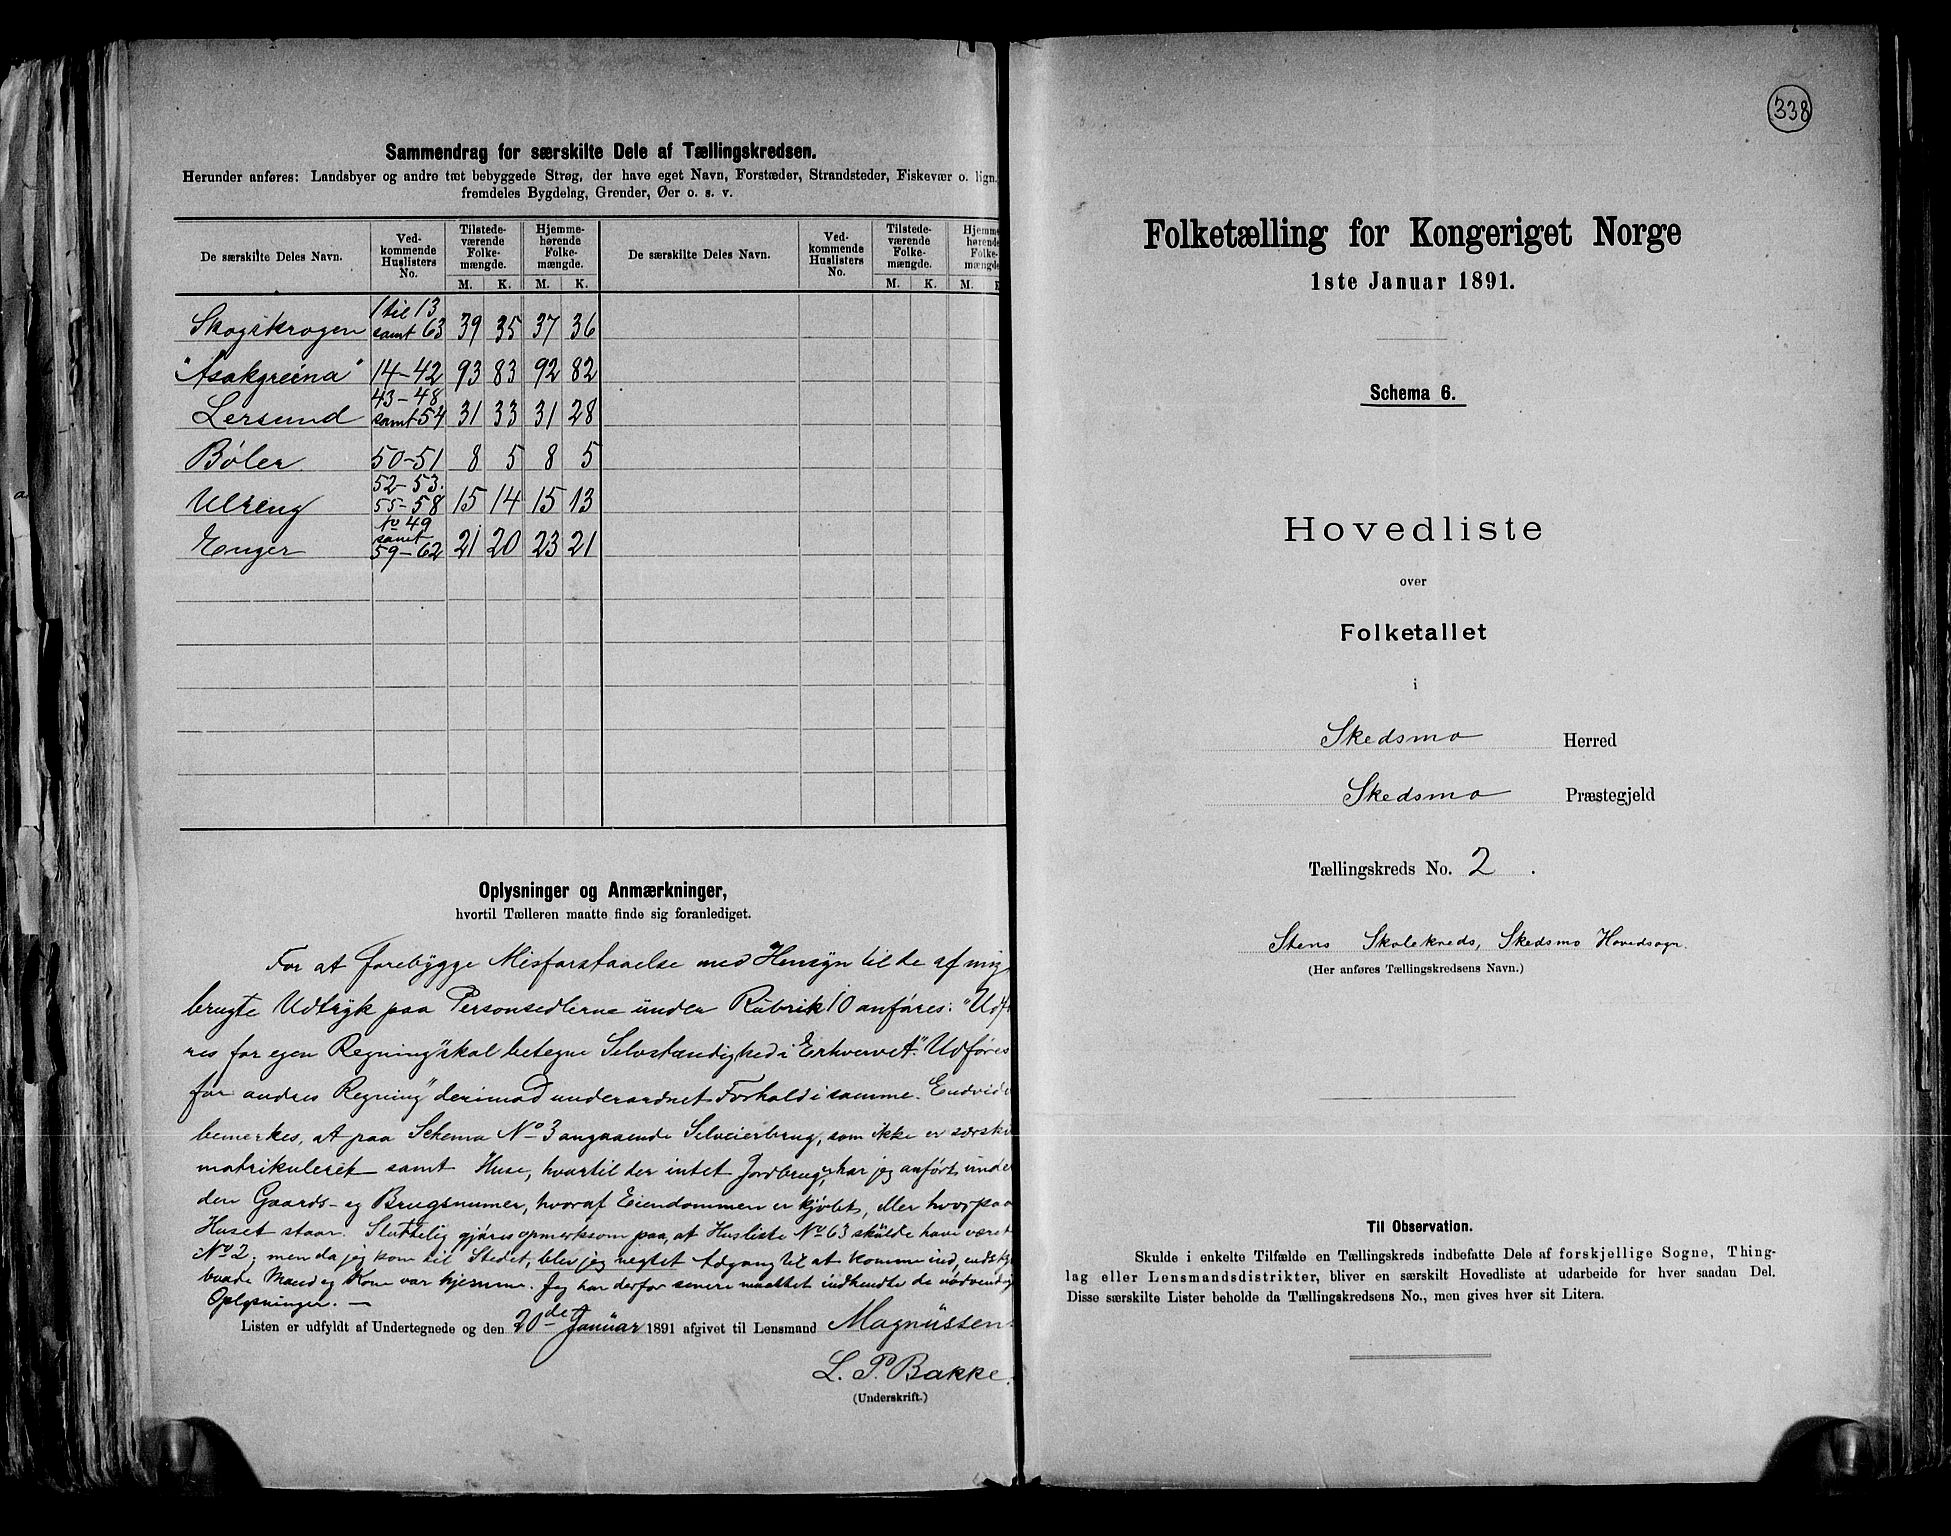 Sammendrag for særskilte Dele af Tællingskredsen.
Herunder anføres: Landsbyer og andre tæt bebyggede Strøg, der have eget Navn, Forstæder, Strandsteder, Fiskevær o. lign.
fremdeles Bygdelag, Grender, Øer o. s. v.
De særskilte Deles Navn. Ved-kommende Huslisters No. Tilstede-værende Folke-mængde. Hjemme-hørende Folke-mængde. De særskilte Deles Navn. Ved-kommende Huslisters No. Tilstede-værende Folke-mængde. Hjemme-hørende Folke-mængde
M. K. M. K. M. K. M. K
Skogskrogen 1 til 13 samt 63 39 35 37 36
"Asakgreina" 14-42 93 83 92 82
Lersund 43-48 samt 54 31 33 31 28
Bøler 50-51 8 5 8 5
Ulreng 52-53. 55-58 15 14 15 13
Enger No 49 samt 59-62 21 20 23 21
Oplysninger og Anmærkninger,
hvortil Tælleren maatte finde sig foranlediget.
For at forebygge Misforstaaelse med Hensyn til de af mig
brugte Udtryk paa Personsedlerne under Rubrik 10 anføres: "Udfø
res for egen Regning" skal betegne Selvstændighed i Erhvervet. "Udføres
for andres Regning" derimod underordnet Forhold i samme. Endvide
bemerkes, at paa Schema No 3 angaaende Selveierbrug, som ikke er særski
matrikuleret samt Huse, hvortil der intet Jordbrug, har jeg anført unde
den Gaards- og Brugsnumer, hvoraf Eiendommen er kjøbt, eller hvorpaa
Huset staar. Sluttelig gjøres opmerksom paa, at Husliste No 63 skulde have været
No 2; men da jeg kom til Stedet, blev jeg negtet Adgang til at komme ind, endskj
baade Mand og Kone var hjemme. Jeg har derfor senere maattet indhendte de nødvendig
Oplysninger. —
Listen er udfyldt af Undertegnede og den 20de Januar 1891 afgivet til Lensmand Magnussen
L. P. Bakke.
(Underskrift.)
338
Folketælling for Kongeriget Norge
1ste Januar 1891.
Schema 6.
Hovedliste
over
Folketallet
i
Skedsmo Herred
Skedsmo Præstegjeld
Tællingskreds No. 2.
Stens Skolekreds, Skedsmo Hovedsogn.
(Her anføres Tællingskredsens Navn.)
Til Observation.
Skulde i enkelte Tilfælde en Tællingskreds indbefatte Dele af forskjellige Sogne, Thing-
lag eller Lensmandsdistrikter, bliver en særskilt Hovedliste at udarbeide for hver saadan Del.
Disse særskilte Lister beholde da Tællingskredsens No., men gives hver sit Litera.